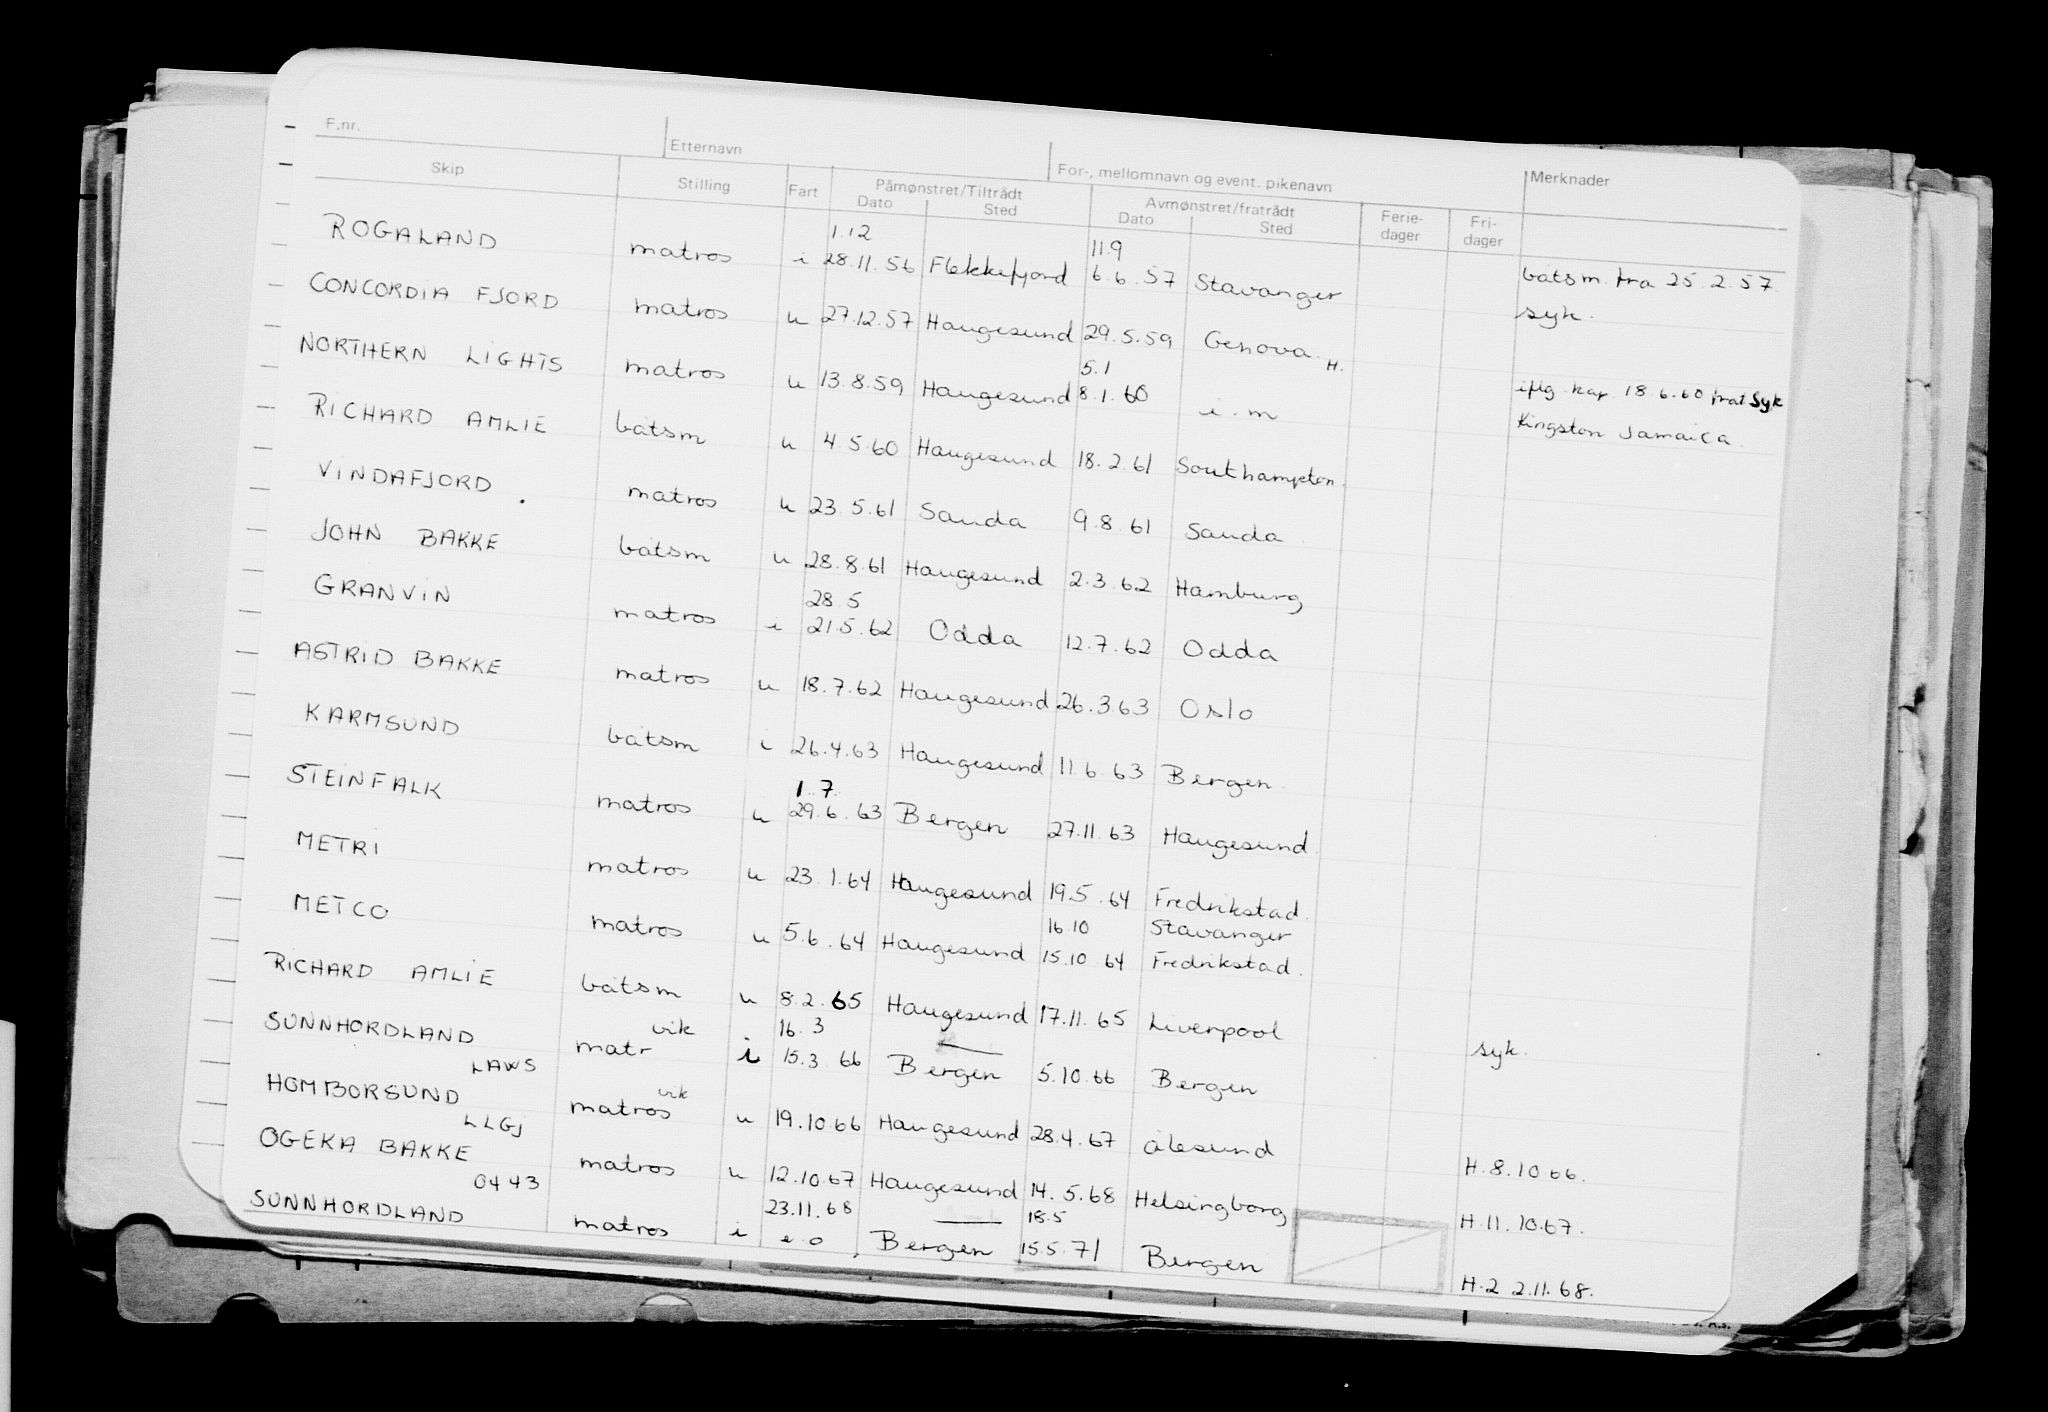 F.nr. Etternavn For-, mellomnavn og event. pikenavn Merknader
Skip Stilling Fart Påmønstret/Tiltrådt Avmønstret/fratrådt Ferie- Fri-
Dato Sted Dato Sted dager dager
1.12 11.9
ROGALAND matros i 28.11.56 Flekkefjord 6.6.57 Stavanger båtsm. fra 25.2.57
CONCORDIA FJORD matros u 27.12.57 Haugesund 29.5.59 Genova. syk.
5.1 H.
NORTHERN LIGHTS matros u 13.8.59 Haugesund 8.1.60 i.m iflg. kap. 18.6.60 frat syk
RICHARD AMLIE båtsm u 4.5.60 Haugesund 18.2.61 Southampton. Kingston Jamaica.
VINDAFJORD. matros u 23.5.61 Sauda 9.8.61 Sauda.
JOHN BAKKE båtsm u 28.8.61 Haugesund 2.3.62 Hamburg
28.5
GRANVIN matros i 21.5.62 Odda 12.7.62 Odda
ASTRID BAKKE matros u 18.7.62 Haugesund 26.3.63 Oslo
KARMSUND båtsm i 26.4.63 Haugesund 11.6.63 Bergen.
1.7
STEINFALK matros u 29.6.63 Bergen 27.11.63 Haugesund.
METRI matros u 23.1.64 Haugesund 19.5.64 Fredrikstad.
16.10 Stavanger
METCO matros u 5.6.64 Haugesund 15.10.64 Fredrikstad.
RICHARD AMLIE båtsm u 8.2.65 Haugesund 17.11.65 Liverpool syk.
vik 16.3
SUNNHORDLAND matr i 15.3.66 Bergen 5.10.66 Bergen
LAWS vik
HOMBORSUND matros u 19.10.66 Haugesund 28.4.67 Ålesund H.8.10.66.
LLGJ
OGEKA BAKKE matros u 12.10.67 Haugesund 14.5.68 Helsingborg H.11.10.67.
0443 23.11.68 18.5
SUNNHORDLAND matros i e.o Bergen 15.5.71 Bergen H.22.11.68.